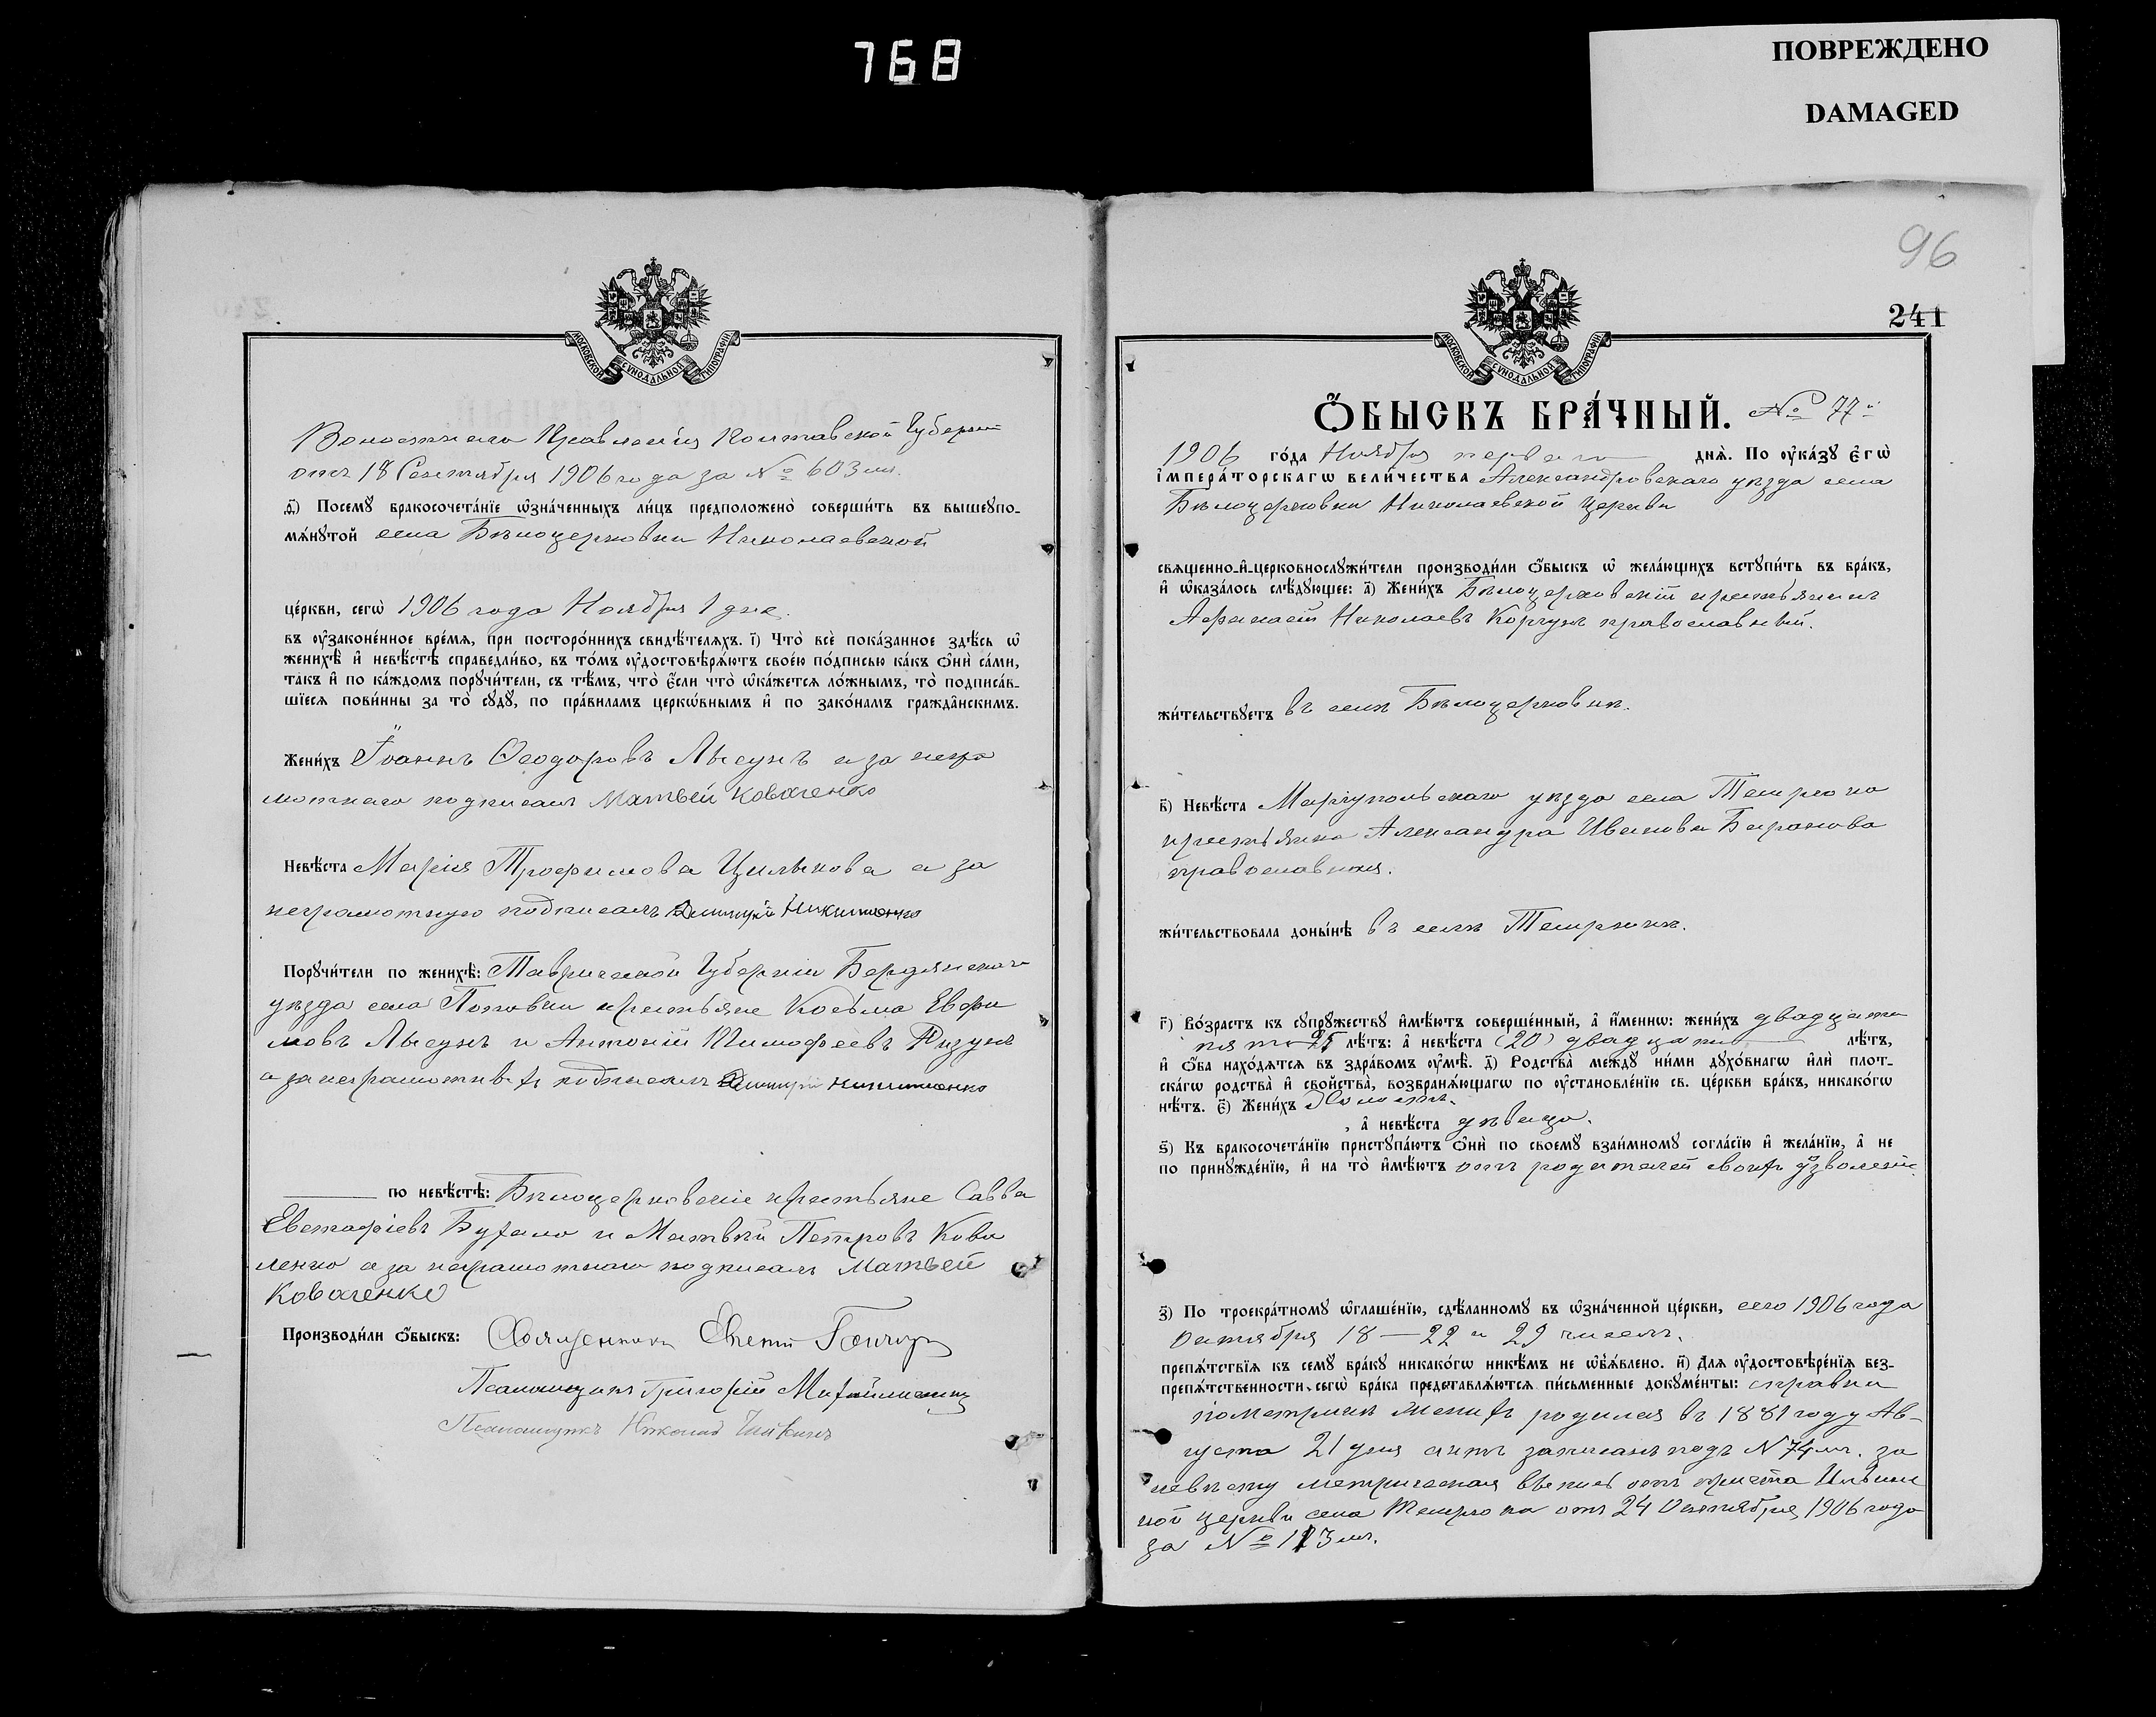 768
ПОВРЕЖДЕНО
DAMAGED
МОСКОВСКОЙ СУНОДАЛЬНОЙ ТИПОГРАФІИ
Волостнаго Правленія Полтавской Губерніи
отъ 18 Сентября 1906 года за № 603 мъ.
д҃і) Посемꙋ бракосочета́нїе ѡ҆зна́ченныхъ ли́цъ предположено̀ соверши́ть въ вышеꙋпо-
мѧ́нꙋтой села Бѣлоцерковки Николаевской
це́ркви, сегѡ̀ 1906 года Ноября 1 дня.
въ ᲂу҆законе́нное вре́мѧ, при посторо́ннихъ свидѣ́телѧхъ. і҃) Что̀ всѐ пока́занное здѣ́сь ѡ҆
женихѣ̀ и҆ невѣ́стѣ справедли́во, въ то́мъ ᲂу҆достовѣрѧ́ютъ свое́ю по́дписью ка́къ ѻ҆нѝ са́ми,
та́къ и҆ по ка́ждомъ порꙋчи́тели, съ тѣ́мъ, что̀ є҆́сли что̀ ѡ҆ка́жетсѧ ло́жнымъ, то̀ подписа́в-
шїесѧ пови́нны за то̀ сꙋдꙋ̀, по пра́виламъ церко́внымъ и҆ по зако́намъ гражда́нскимъ.
Жени́хъ Іоаннъ Ѳеодоровъ Лысунъ а за негра
мотнаго подписалъ Матвей Коваленко
Невѣ́ста Марія Трофимова Цилькова а за
неграмотную подписалъ Дмитрій Никитенко
Порꙋчи́тели по женихѣ̀: Таврической Губерніи Бердянскаго
уѣзда села Поповки крестьяне Косьма Евфи
мовъ Лысунъ и Антоній Тимофеевъ Ризунъ
а за неграмотныхъ подписалъ Дмитрій Никитенко
по невѣ́стѣ: Бѣлоцерковскіе крестьяне Савва
Евстафіевъ Бухало и Матвѣй Петровъ Кова
ленко а за неграмотнаго подписалъ Матвей
Коваленко
Производи́ли ѻ҆́быскъ: Священникъ Гончаръ
Псаломщикъ Григорій
Псаломщикъ Николай
96
241
МОСКОВСКОЙ СУНОДАЛЬНОЙ ТИПОГРАФІИ
Ѻ҆́БЫСКЪ БРА́ЧНЫЙ. № 77й
1906 го́да Ноября перваго днѧ̀. По ᲂу҆ка́зꙋ є҆гѡ̀
і҆мпера́торскагѡ вели́чества Александровскаго уѣзда села
Бѣлоцерковки Николаевской церкви
свѧщенно-и҆-церковнослꙋжи́тели производи́ли ѻ҆́быскъ ѡ҆ жела́ющихъ встꙋпи́ть въ бра́къ,
и҆ ѡ҆каза́лось слѣ́дꙋющее: а҃) Жени́хъ Бѣлоцерковскій крестьянинъ
Афанасій Николаевъ Коргунъ православный.
жи́тельствꙋетъ въ селѣ Бѣлоцерковкѣ.
в҃) Невѣ́ста Маріупольскаго уѣзда села Темрюка
крестьянка Александра Иванова Баранова
православная.
жи́тельствовала доны́нѣ въ селѣ Темрюкѣ.
г҃) Во́зрастъ къ сꙋпрꙋ́жествꙋ и҆мѣ́ютъ соверше́нный, а҆ и҆́меннѡ: жени́хъ двадцати
пяти 25 лѣ́тъ: а҆ невѣ́ста (20) двадцати лѣ́тъ,
и҆ ѻ҆́ба нахо́дѧтсѧ въ здра́вомъ ᲂу҆мѣ̀. д҃) Родства̀ междꙋ ни́ми дꙋхо́внагѡ и҆лѝ плот-
ска́гѡ родства̀ и҆ сво́йства, возбранѧ́ющагѡ по ᲂу҆становле́нїю св. це́ркви бра́къ, никако́гѡ
нѣ́тъ. є҃) Жени́хъ Холостъ.
, а҆ невѣ́ста дѣвица.
ѕ҃) Къ бракосочета́нїю пристꙋпа́ютъ ѻ҆нѝ по своемꙋ̀ взаи́мномꙋ согла́сїю и҆ жела́нїю, а҆ не
по принꙋжде́нїю, и҆ на то̀ и҆мѣ́ютъ отъ родителей своихъ дозволеніе.
з҃) По троекра́тномꙋ ѡ҆глаше́нїю, сдѣ́ланномꙋ въ ѡ҆зна́ченной це́ркви, сего 1906 года
Октября 18 — 22 и 29 чиселъ.
препѧ́тствїѧ къ семꙋ̀ бра́кꙋ никако́гѡ никѣ́мъ не ѡ҆б̾ѧ́влено. и҃) Длѧ ᲂу҆достовѣре́нїѧ без-
препѧ́тственности сегѡ̀ бра́ка представлѧ́ютсѧ пи́сьменные докꙋме́нты: справки
по метрикѣ Женихъ родился въ 1881 году Ав-
густа 21 дня актъ записанъ подъ № 74 мъ. за
невѣсту метрическая выпись отъ причта Ильин
ской церкви села Темрюка отъ 24 Октября 1906 года
за № 173 мъ.